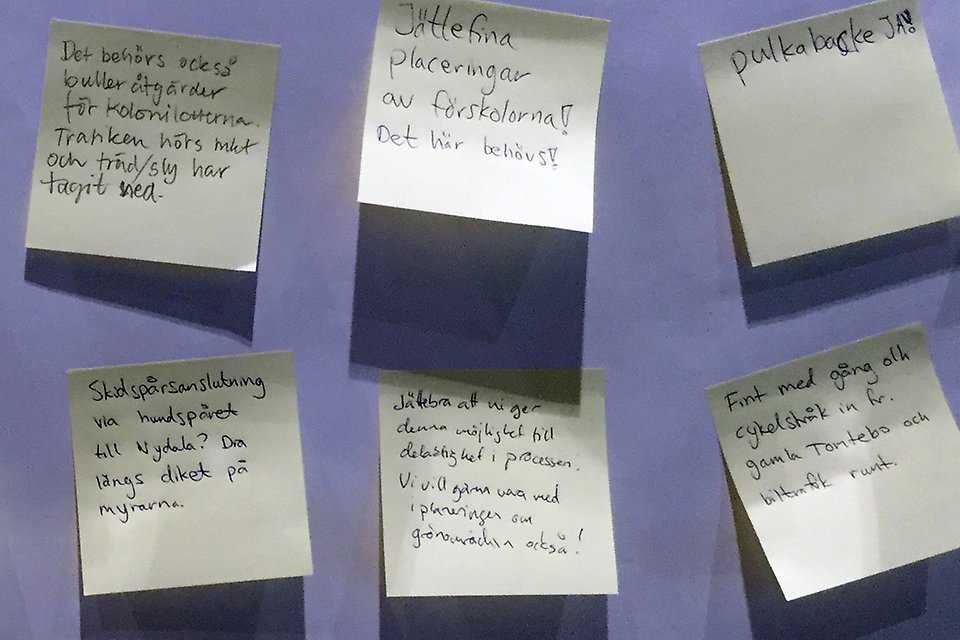 Det behövs också
bulleråtgärder
för kolonilotterna.
Trafiken hörs mkt
och träd/sly har
tagit ned.
Jättefina
placeringar
av förskolorna!
Det här behövs!
pulkabacke JA!
Skidspårsanslutning
via hundspåret
till Nydala? Dra
längs diket på
myrarna.
Jättebra att ni ger
denna möjlighet till
delaktighet i processen.
Vi vill gärna vara med
i planeringen om
grönområden också!
Fint med gång och
cykelstråk in fr.
gamla Tomtebo och
biltrafik runt.